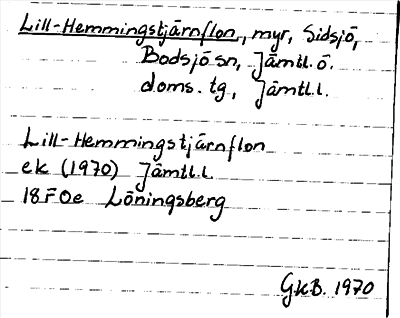 Lill-Hemmingstjärnflon, myr, Sidsjö,
Bodsjö sn, Jämtl. ö.
doms. tg, Jämtl.l.
Lill-Hemmingstjärnflon
ek (1970) Jämtl.l.
18F0e Löningsberg
GKB. 1970